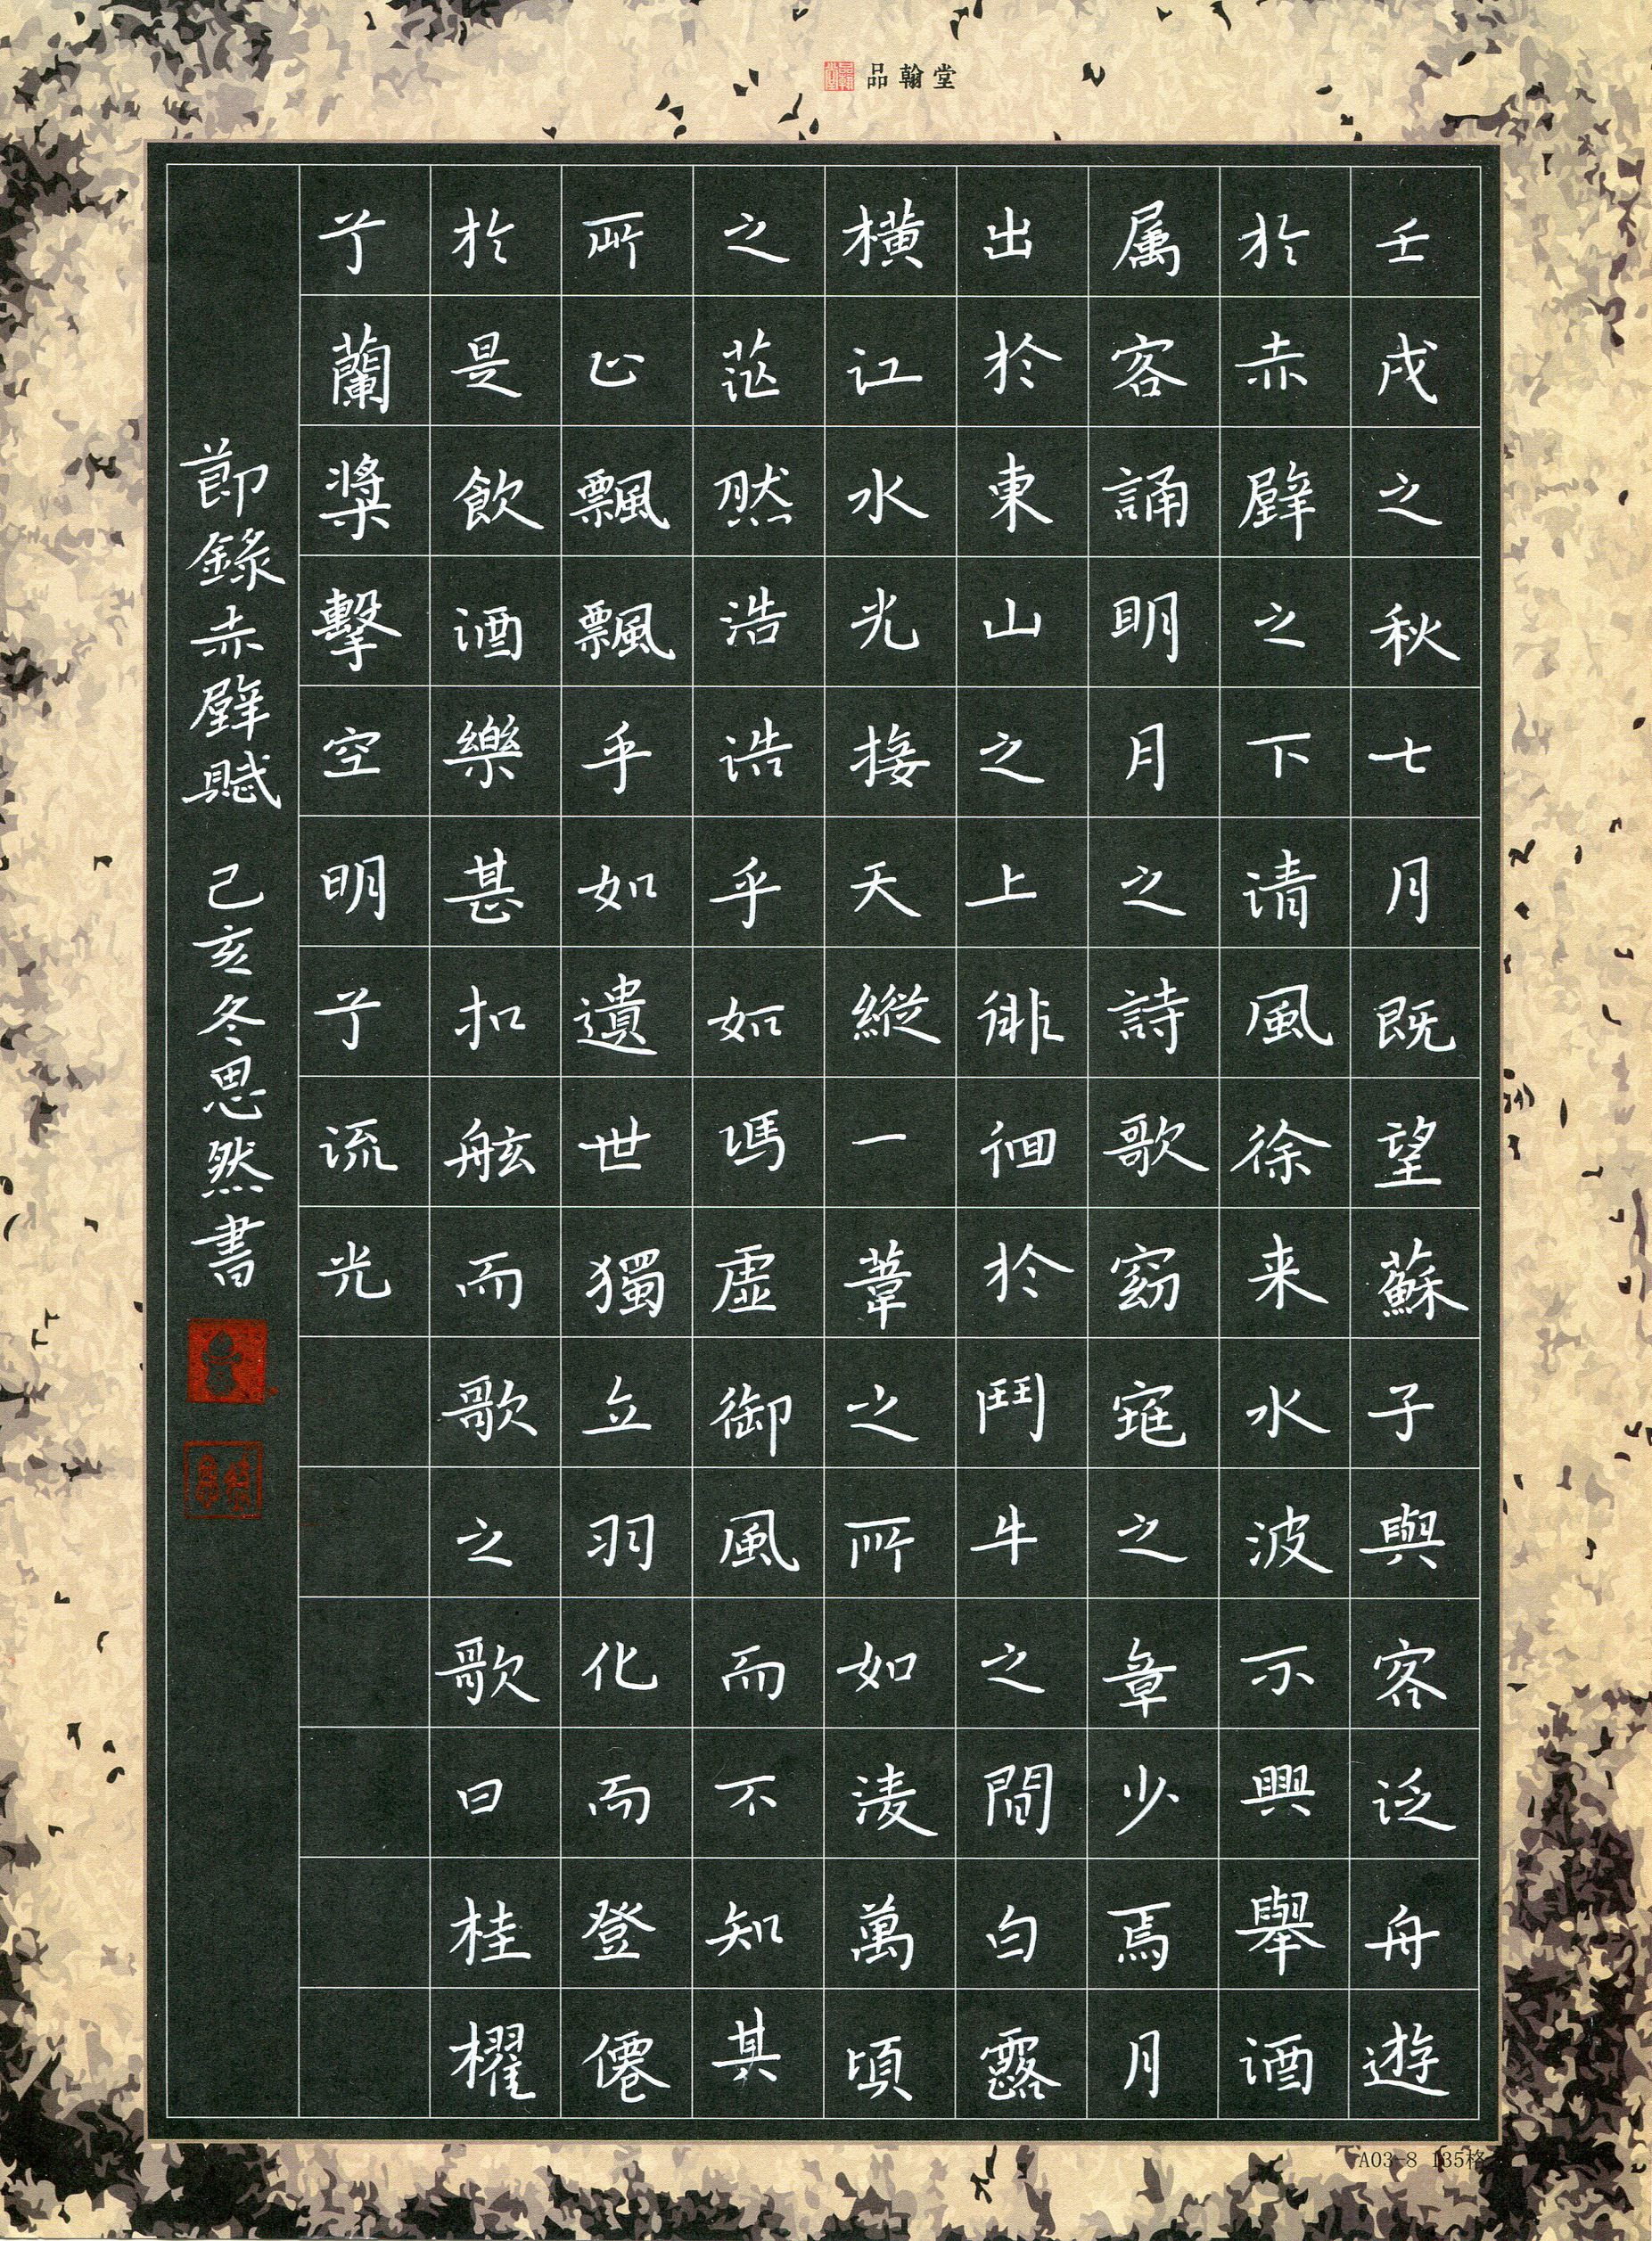 品翰堂
壬戌之秋七月既望蘇子與客泛舟遊
於赤壁之下清風徐来水波不興舉酒
属客誦明月之詩歌窈窕之章少焉月
出於東山之上徘徊於鬥牛之間白露
橫江水光接天縱一葦之所如淩萬頃
之茫然浩浩乎如馮虛御風而不知其
所止飄飄乎如遺世獨立羽化而登僊
於是飲酒樂甚扣舷而歌之歌曰桂櫂
兮蘭槳擊空明兮流光
節錄赤壁賦 己亥冬思然書
A03-8 135格